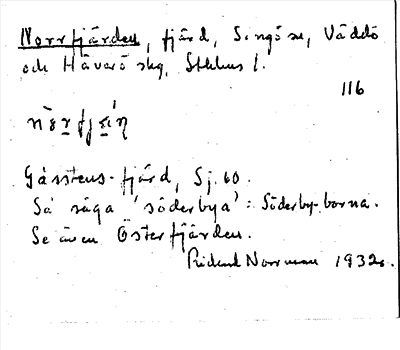 Norrfjärden, fjärd, Singö sn, Väddö
och Häverö skg, Sthlms l.
116
Gåsstens-fjärd, Sj. 60.
Så säga 'söderbya' = Söderby-borna.
Se även Österfjärden.
Rickard Norrman 1932.